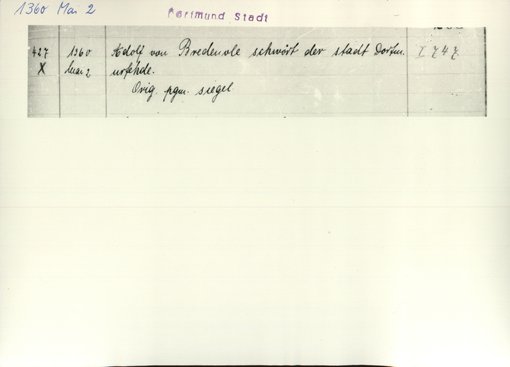 1360 Mai 2
Dortmund Stadt
427 1360 Adolf von Bredenole schwört der stadt Dortm. I 747
X Mai 2 urfehde.
Orig. pgm. siegel